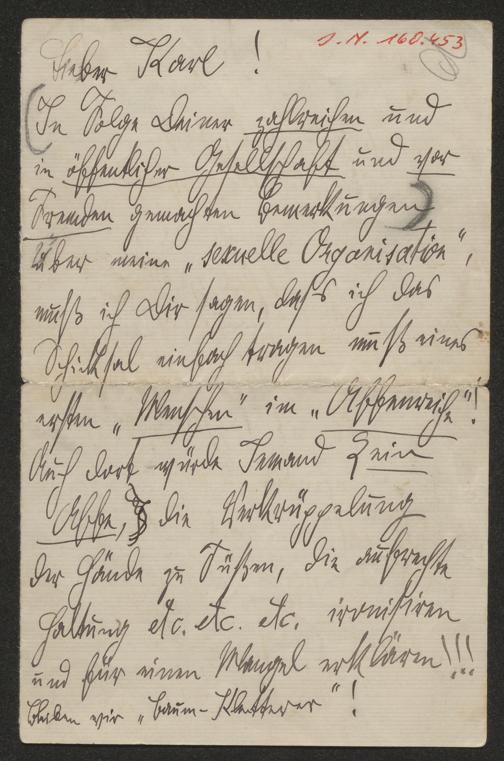 I. N. 160.453
Lieber Karl !
(In Folge Deiner zahlreichen und
in öffentlicher Gesellschaft und vor
Fremden gemachten Bemerkungen)
über meine „sexuelle Organisation",
muß ich Dir sagen, dass ich das
Schicksal einfach tragen muß eines
ersten „Menschen" im „Affenreiche"!
Auch dort würde Jemand kein
Affe, die Verkrüppelung
der Hände zu Füßen, die aufrechte
Haltung etc. etc. etc. ironisiren
und für einen Mangel erklären!!!
Bleiben wir „Baum-Kletterer"!